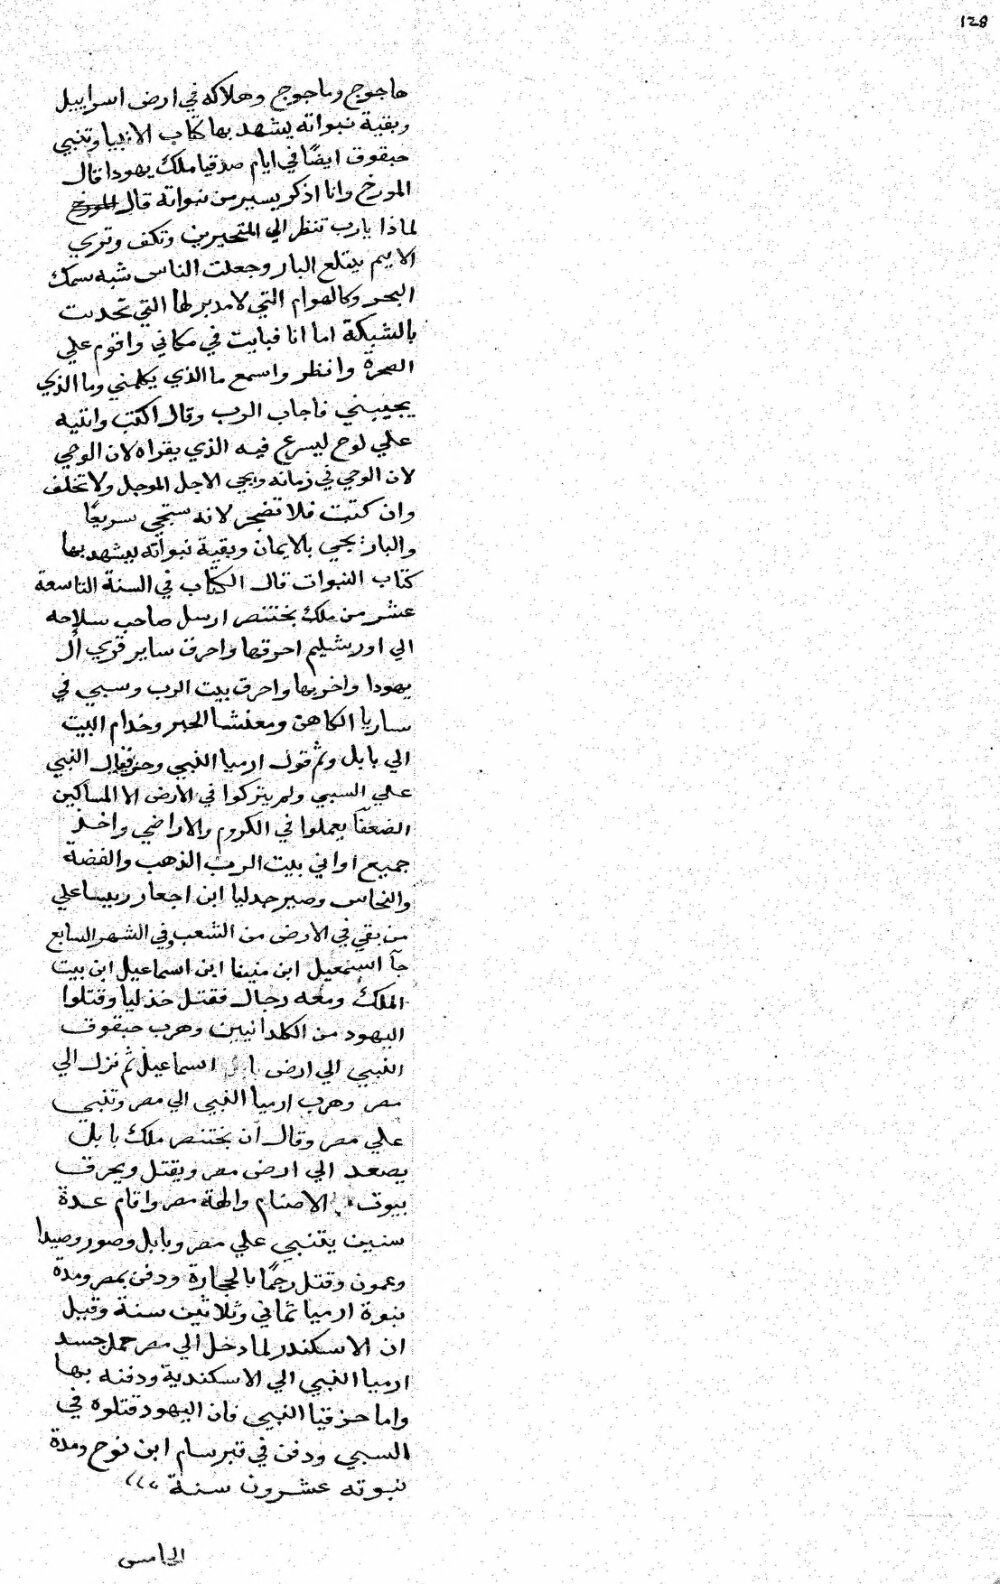 128
هاجوج وماجوج وهلاكه في ارض اسراييل
وبقية نبواته يشهد بها كتاب الانبيا وتنبي
حبقوق ايضًا في ايام صدقيا ملك يهودا قال
المورخ وانا اذكر يسير من نبواته قال المورخ
لماذا يارب تنظر الي المتحيرين وتكف وتري
الاثيم يبتلع البار وجعلت الناس شبه سمك
البحر وكالهوام التي لا مدبر لها التي تحدت
بالشبكة اما انا فبايت في مكاني واقوم علي
الصخرة وانظر واسمع ما الذي يكلمني وما الذي
يجيبني فاجاب الرب وقال اكتب واتيه
علي لوح ليسرع فيه الذي يقراه لان الوحي
لان الوحي في زمانه ويجي الاجل الموجل ولا تخلف
وان كتبت فلا تضجر لانه ستجي سريعًا
والبار يحي بالايمان وبقية نبواته يشهد بها
كتاب النبوات قال الكتاب في السنة التاسعة
عشر من ملك بختنصر ارسل صاحب سلاحه
الي اورشليم احرقها واحرق ساير قري ال
يهودا واخربها واحرق بيت الرب وسبي في
ساريا الكاهن ومعنشا الحبر وخدام البيت
الي بابل وتم قول ارميا النبي وحزقيال النبي
علي السبي ولم يتركوا في الارض الا المساكين
الضعفا يعملوا في الكروم والاراضي واخذ
جميع اواني بيت الرب الذهب والفضة
والنحاس وصير جدليا ابن اجعار رييسا علي
من بقي في الارض من الشعب وفي الشهر السابع
جآ اسمعيل ابن منيفا ابن اسماعيل ابن بيت
الملك ومعه رجال فقتل خذليا وقتلوا
اليهود من الكلدانيين وهرب حبقوق
النبي الي ارض اسماعيل ثم نزل الي
مصر وهرب ارميا النبي الي مصر وتنبي
علي مصر وقال ان بختنصر ملك بابل
يصعد الي ارض مصر ويقتل ويحرق
بيوت الاصنام والهة مصر واقام عدة
سنين يتنبي علي مصر وبابل وصور وصيدا
وعمون وقتل رجمًا بالحجارة ودفن بمصر ومدة
نبوة ارميا ثماني وثلاثين سنة وقيل
ان الاسكندر لما دخل الي مصر حمل جسد
ارميا النبي الي الاسكندية ودفنه بها
واما حزقيا النبي فان اليهود قتلوه في
السبي ودفن في قبر سام ابن نوح ومدة
نبوته عشرون سنة
الخامس